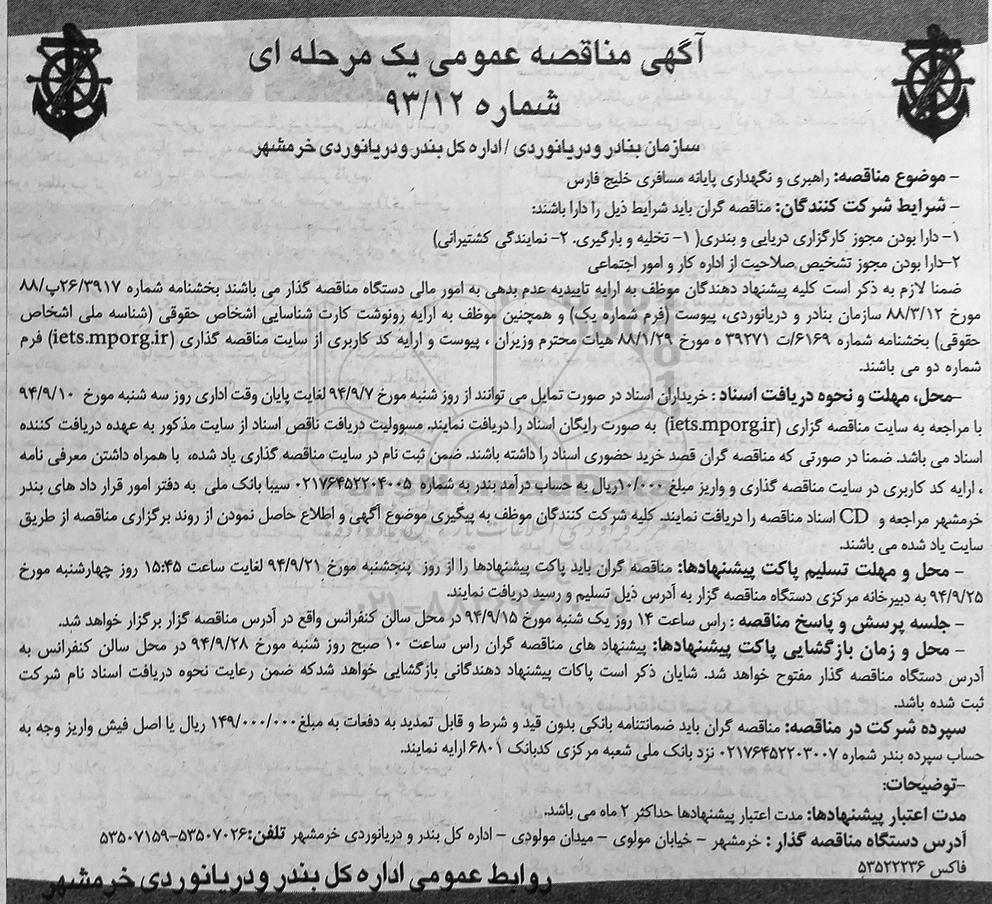 آگهی مناقصه عمومی یک مرحله ای
شماره ۹۳/۱۲
سازمان بنادر و دریانوردی / اداره کل بندر و دریانوردی خرمشهر
- موضوع مناقصه: راهبری و نگهداری پایانه مسافری خلیج فارس
- شرایط شرکت کنندگان: مناقصه گران باید شرایط ذیل را دارا باشند:
۱- دارا بودن مجوز کارگزاری دریایی و بندری( ۱- تخلیه و بارگیری. ۲- نمایندگی کشتیرانی)
۲-دارا بودن مجوز تشخیص صلاحیت از اداره کار و امور اجتماعی
ضمنا لازم به ذکر است کلیه پیشنهاد دهندگان موظف به ارایه تاییدیه عدم بدهی به امور مالی دستگاه مناقصه گذار می باشند بخشنامه شماره ۲۶/۳۹۱۷پ/۸۸
مورخ ۸۸/۳/۱۲ سازمان بنادر و دریانوردی، پیوست (فرم شماره یک) و همچنین موظف به ارایه رونوشت کارت شناسایی اشخاص حقوقی (شناسه ملی اشخاص
حقوقی) بخشنامه شماره ۶۱۶۹/ت ۳۹۲۷۱ ه مورخ ۸۸/۱/۲۹ هیات محترم وزیران ، پیوست و ارایه کد کاربری از سایت مناقصه گذاری (iets.mporg.ir) فرم
شماره دو می باشند.
-محل، مهلت و نحوه دریافت اسناد : خریداران اسناد در صورت تمایل می توانند از روز شنبه مورخ ۹۴/۹/۷ لغایت پایان وقت اداری روز سه شنبه مورخ ۹۴/۹/۱۰
با مراجعه به سایت مناقصه گزاری (iets.mporg.ir) به صورت رایگان اسناد را دریافت نمایند. مسوولیت دریافت ناقص اسناد از سایت مذکور به عهده دریافت کننده
اسناد می باشد. ضمنا در صورتی که مناقصه گران قصد خرید حضوری اسناد را داشته باشند. ضمن ثبت نام در سایت مناقصه گذاری یاد شده، با همراه داشتن معرفی نامه
، ارایه کد کاربری در سایت مناقصه گذاری و واریز مبلغ ۱۰/۰۰۰ریال به حساب درآمد بندر به شماره ۰۲۱۷۶۴۵۲۲۰۴۰۰۵ سیبا بانک ملی به دفتر امور قرار داد های بندر
خرمشهر مراجعه و CD اسناد مناقصه را دریافت نمایند. کلیه شرکت کنندگان موظف به پیگیری موضوع آگهی و اطلاع حاصل نمودن از روند برگزاری مناقصه از طریق
سایت یاد شده می باشند.
- محل و مهلت تسلیم پاکت پیشنهادها: مناقصه گران باید پاکت پیشنهادها را از روز پنجشنبه مورخ ۹۴/۹/۲۱ لغایت ساعت ۱۵:۴۵ روز چهارشنبه مورخ
۹۴/۹/۲۵ به دبیرخانه مرکزی دستگاه مناقصه گزار به آدرس ذیل تسلیم و رسید دریافت نمایند.
- جلسه پرسش و پاسخ مناقصه : راس ساعت ۱۴ روز یک شنبه مورخ ۹۴/۹/۱۵ در محل سالن کنفرانس واقع در آدرس مناقصه گزار برگزار خواهد شد.
- محل و زمان بازگشایی پاکت پیشنهادها: پیشنهاد های مناقصه گران راس ساعت ۱۰ صبح روز شنبه مورخ ۹۴/۹/۲۸ در محل سالن کنفرانس به
آدرس دستگاه مناقصه گذار مفتوح خواهد شد. شایان ذکر است پاکات پیشنهاد دهندگانی بازگشایی خواهد شدکه ضمن رعایت نحوه دریافت اسناد نام شرکت
ثبت شده باشد.
سپرده شرکت در مناقصه: مناقصه گران باید ضمانتنامه بانکی بدون قید و شرط و قابل تمدید به دفعات به مبلغ ۱۴۹/۰۰۰/۰۰۰ ریال یا اصل فیش واریز وجه به
حساب سپرده بندر شماره ۰۲۱۷۶۴۵۲۲۰۳۰۰۷ نزد بانک ملی شعبه مرکزی کدبانک ۶۸۰۱ ارایه نمایند.
-توضیحات:
مدت اعتبار پیشنهادها: مدت اعتبار پیشنهادها حداکثر ۲ ماه می باشد.
آدرس دستگاه مناقصه گذار : خرمشهر - خیابان مولوی - میدان مولودی - اداره کل بندر و دریانوردی خرمشهر تلفن:۵۳۵۰۷۰۲۶-۵۳۵۰۷۱۵۹
فاکس ۵۳۵۲۲۲۳۶
روابط عمومی اداره کل بندر و دریانوردی خرمشهر